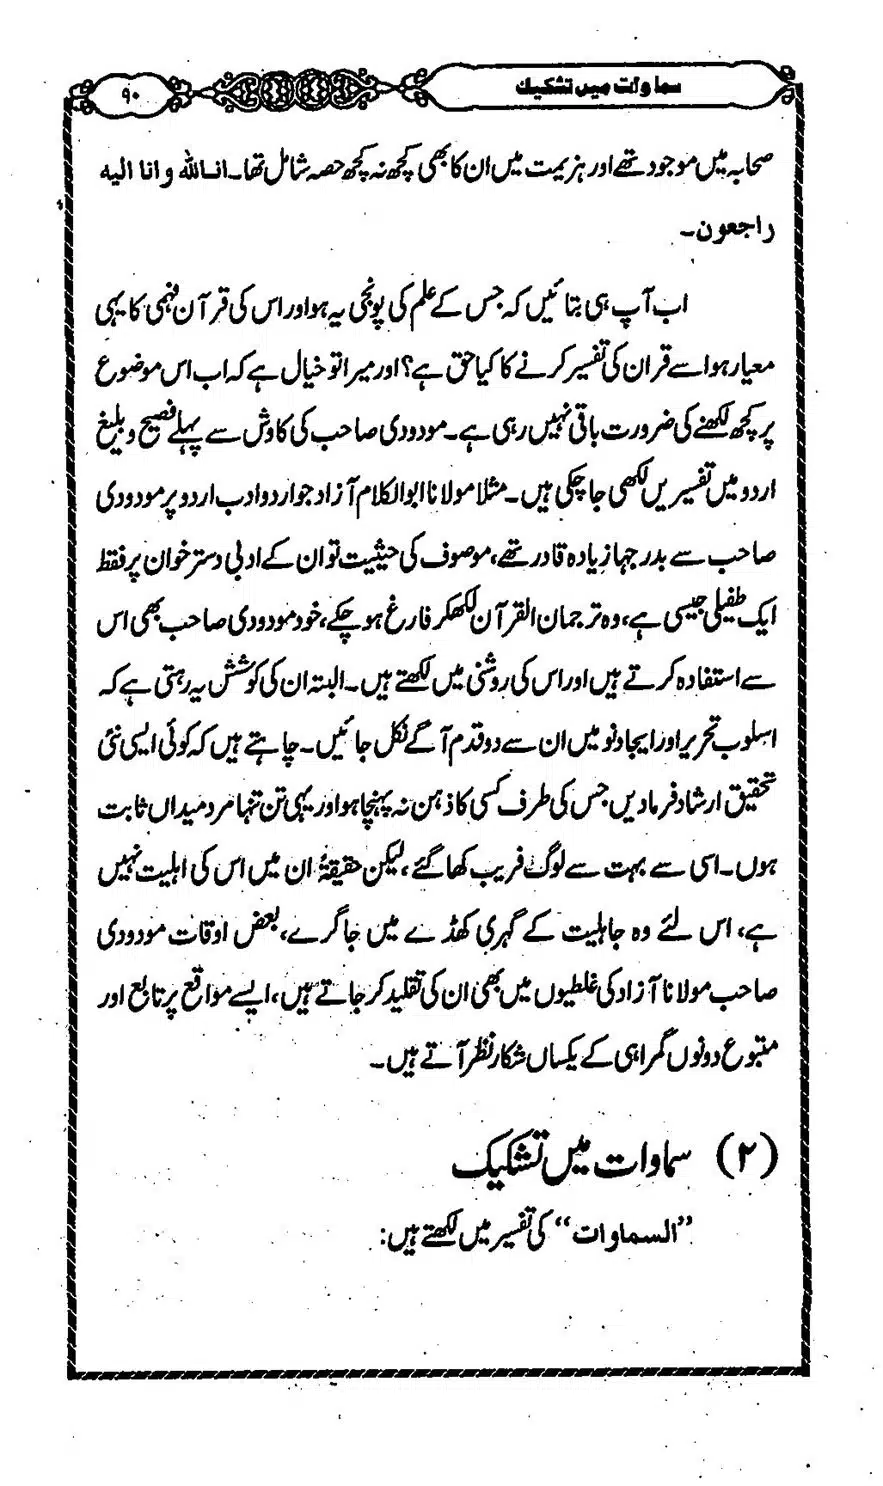 سماوات میں تشکیک
۹۰
صحابہ میں موجود تھے اور ہزیمت میں ان کا بھی کچھ نہ کچھ حصہ شامل تھا۔ انا للہ و انا الیہ
راجعون۔
اب آپ ہی بتائیں کہ جس کے علم کی پونجی یہ ہو اور اس کی قرآن فہمی کا یہی
معیار ہو اسے قران کی تفسیر کرنے کا کیا حق ہے؟ اور میرا تو خیال ہے کہ اب اس موضوع
پر کچھ لکھنے کی ضرورت باقی نہیں رہی ہے۔ مودودی صاحب کی کاوش سے پہلے فصیح و بلیغ
اردو میں تفسیریں لکھی جا چکی ہیں۔ مثلا مولانا ابوالکلام آزاد جو اردو ادب اردو پر مودودی
صاحب سے بدر جہا زیادہ قادر تھے، موصوف کی حیثیت تو ان کے ادبی دسترخوان پر فقط
ایک طفیلی جیسی ہے، وہ ترجمان القرآن لکھکر فارغ ہو چکے، خود مودودی صاحب بھی اس
سے استفادہ کرتے ہیں اور اس کی روشنی میں لکھتے ہیں۔ البتہ ان کی کوشش یہ رہتی ہے کہ
اسلوب تحریر اور ایجاد نو میں ان سے دو قدم آگے نکل جائیں۔ چاہتے ہیں کہ کوئی ایسی نئی
تحقیق ارشاد فرمادیں جس کی طرف کسی کا ذہن نہ پہنچا ہو اور یہی تن تنہا مرد میداں ثابت
ہوں۔ اسی سے بہت سے لوگ فریب کھا گئے، لیکن حقیقۃً ان میں اس کی اہلیت نہیں
ہے، اس لئے وہ جاہلیت کے گہری کھڈے میں جا گرے، بعض اوقات مودودی
صاحب مولانا آزاد کی غلطیوں میں بھی ان کی تقلید کر جاتے ہیں، ایسے مواقع پر تابع اور
متبوع دونوں گمراہی کے یکساں شکار نظر آتے ہیں۔
(۲) سماوات میں تشکیک
”السماوات“ کی تفسیر میں لکھتے ہیں: